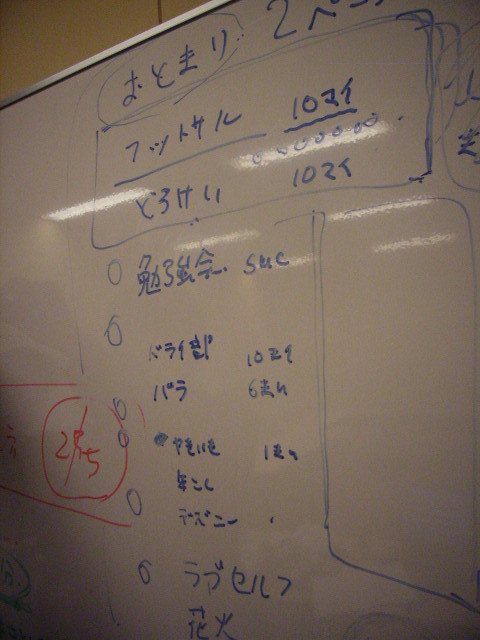 おとまり 2ペ
フットサル 10マイ
どろけい 10マイ
勉強会 SHC
ドライ部 10マイ
パラ 6まい
やきいも 1まい
年こし
ディズニー
2/5
ラブセルフ
花火